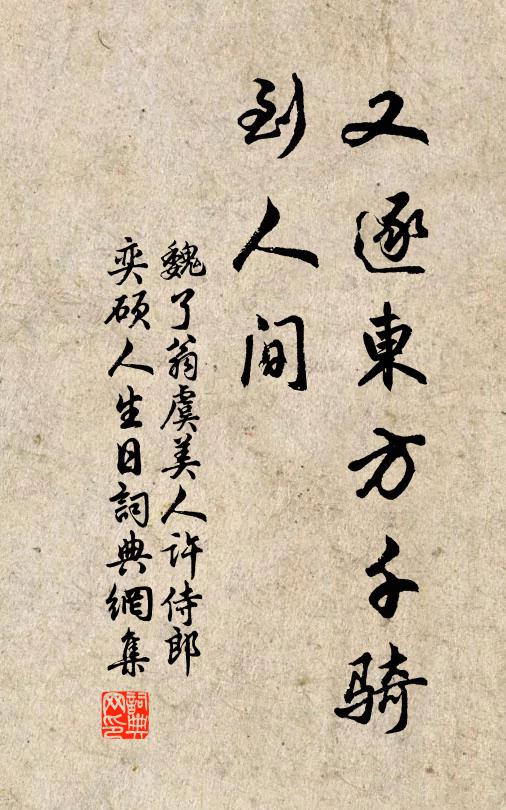 又逐東方千骑
到人间
魏了翁虞美人许侍郎
奕硕人生日詞典網集
詞典
网印